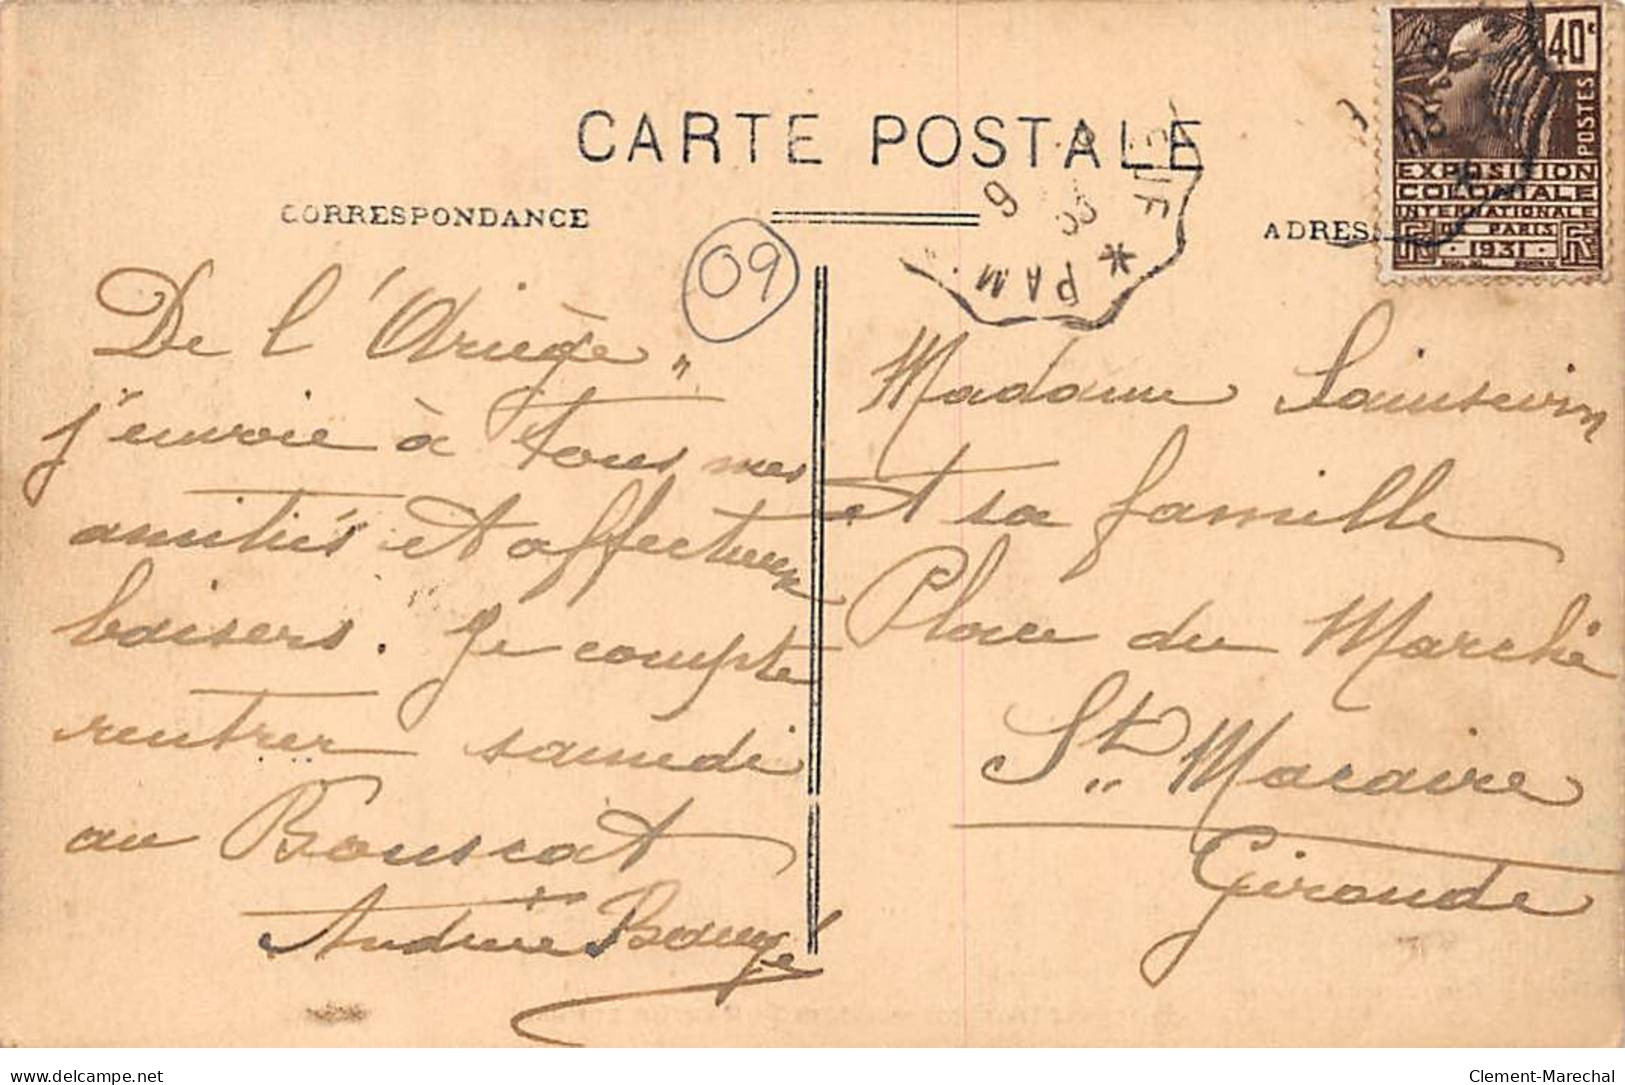 CARTE POSTALE
CORRESPONDANCE
ADRES
09
40c
POSTES
EXPOSITION
COLONIALE
INTERNATIONALE
DE PARIS
1931
PAM
De l'Ariège "
j'envoie à tous mes
amitiés et affectueux
baisers. Je compte
rentrer samedi
au Bouscat
Andrée Baugé
Madame Sainsevin
et sa famille
Place du Marché
St. Macaire
Gironde
delcampe.net
Clement-Marechal